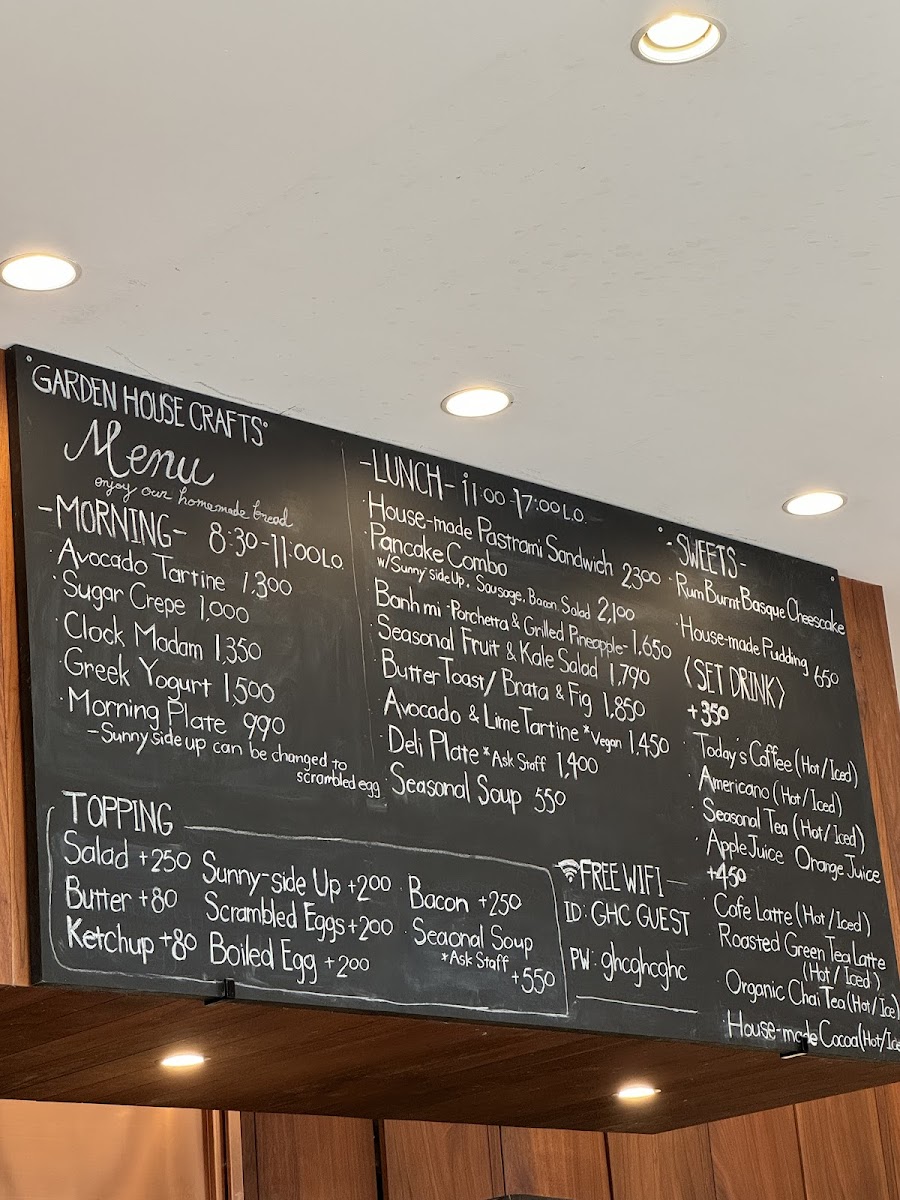 GARDEN HOUSE CRAFTS
Menu
enjoy our homemade bread
-MORNING- 8:30-11:00 L.O
・Avocado Tartine 1,300
・Sugar Crepe 1,000
・Clock Madam 1,350
・Greek Yogurt 1,500
・Morning Plate 990
-Sunny side up can be changed to
scrambled egg
-LUNCH- 11:00-17:00 L.O.
・House-made Pastrami Sandwich 2300
・Pancake Combo
w/Sunny side Up, Sausage, Bacon Salad 2,100
・Banh mi -Porchetta & Grilled Pineapple- 1,650
・Seasonal Fruit & Kale Salad 1,790
・Butter Toast/Brata & Fig 1,850
・Avocado & Lime Tartine *Vegan 1,450
・Deli Plate *Ask Staff 1,400
・Seasonal Soup 550
-SWEETS-
・Rum Burnt Basque Cheescake
・House-made Pudding 650
〈SET DRINK〉
+350
・Today's Coffee (Hot/Iced)
Americano (Hot/Iced)
Seasonal Tea (Hot/Iced)
Apple Juice Orange Juice
+450
・Cafe Latte (Hot/Iced)
Roasted Green Tea Latte
(Hot/Iced)
Organic Chai Tea (Hot/Ice
House-made Cocoa (Hot/Ice
TOPPING
Salad +250
Butter +80
Ketchup +80
Sunny-side Up +200
Scrambled Eggs +200
Boiled Egg +200
Bacon +250
Seaonal Soup
*Ask Staff
+550
FREE WIFI
ID: GHC GUEST
PW: ghcghcghc